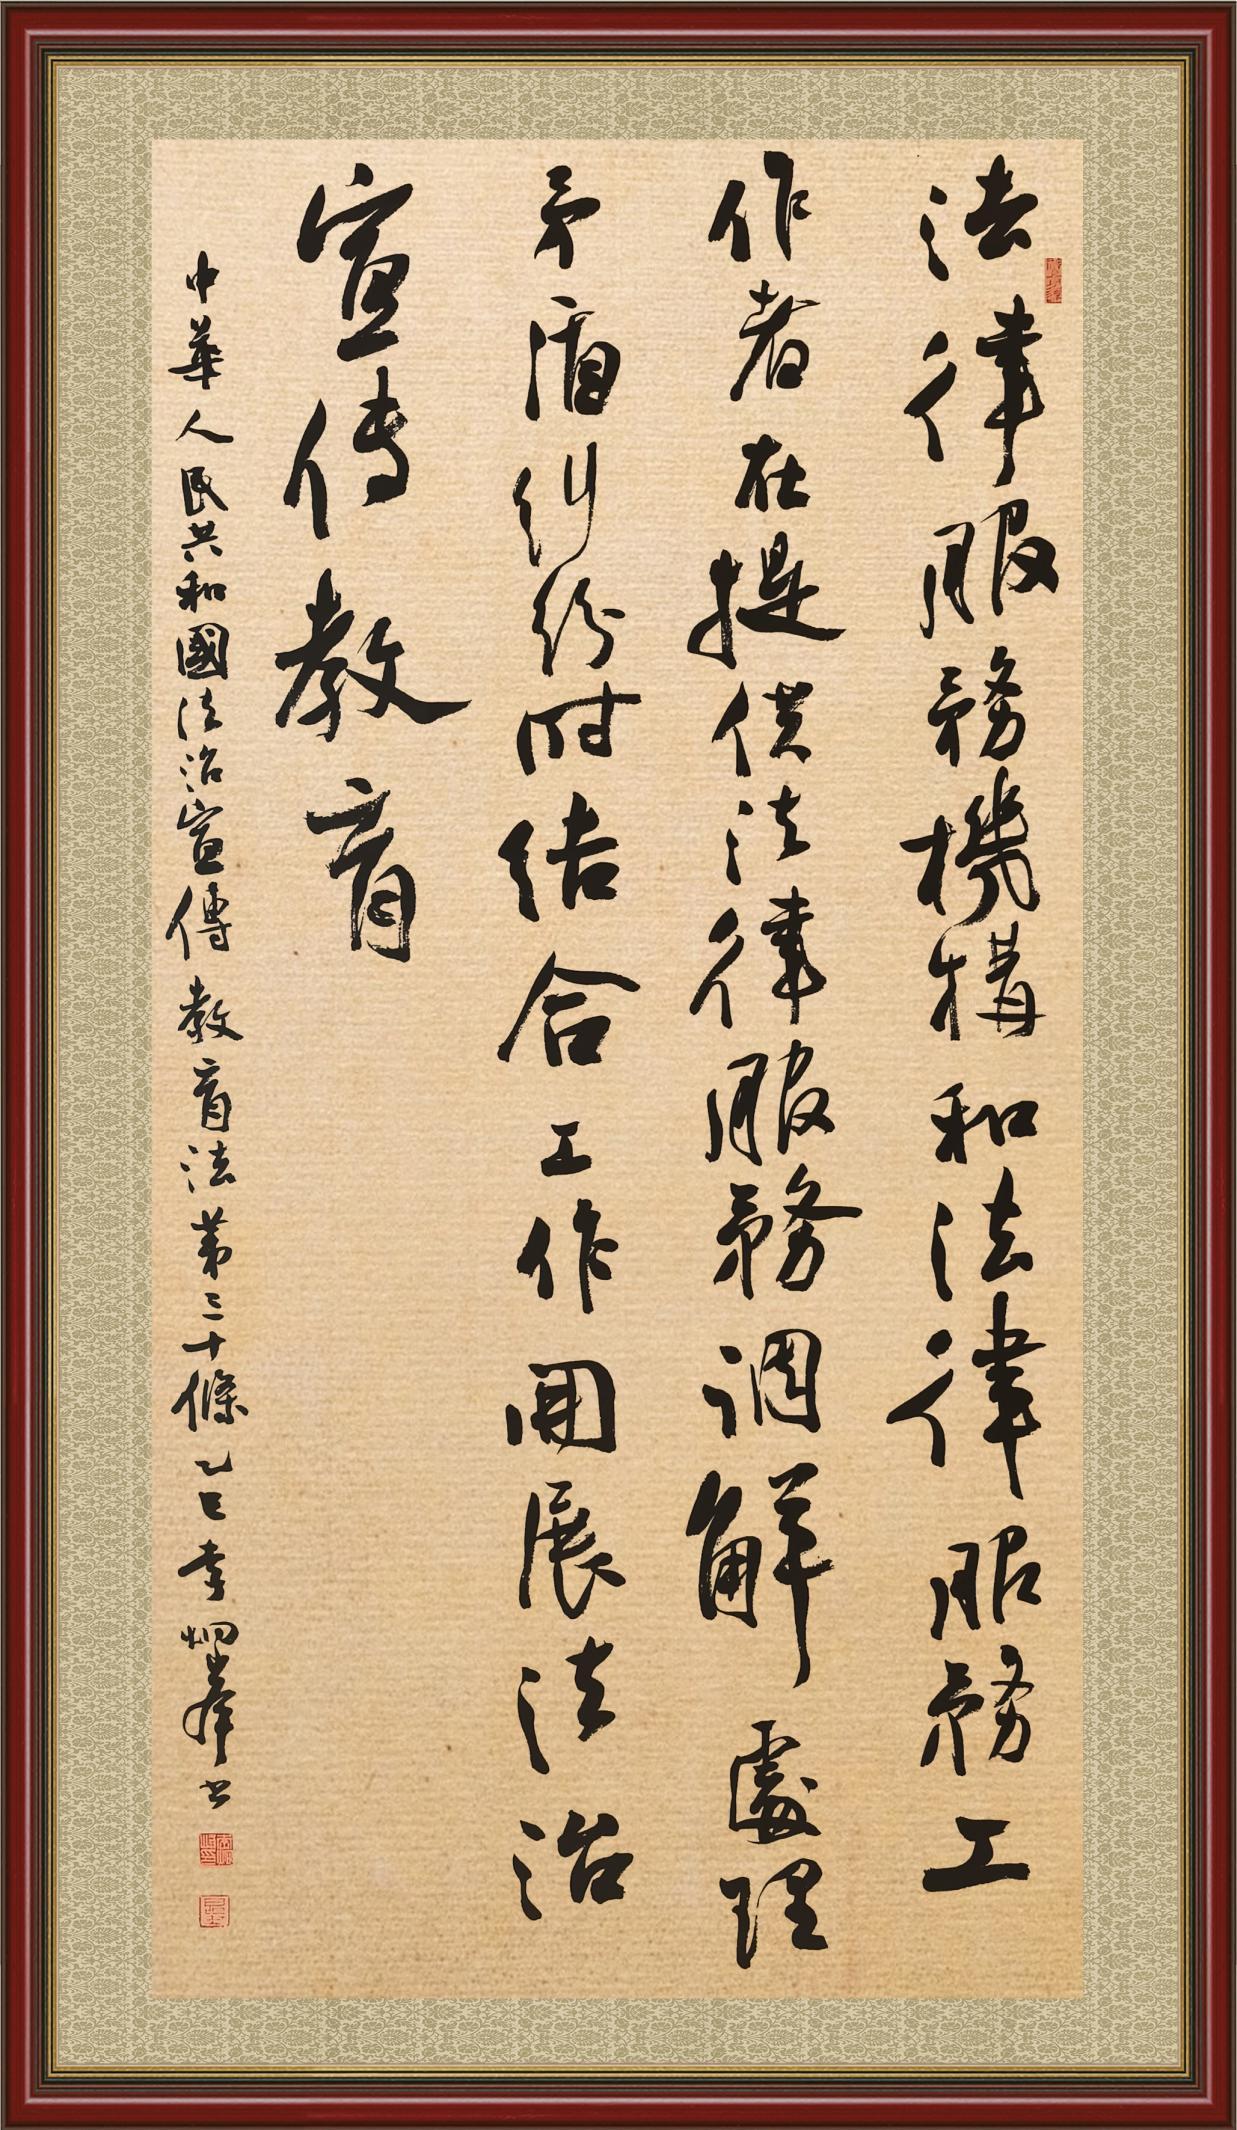 法律服務機構和法律服務工
作者在提供法律服務调解處理
矛盾纠纷时结合工作開展法治
宣传教育
中華人民共和國法治宣傳教育法第三十條乙巳李炯峯书